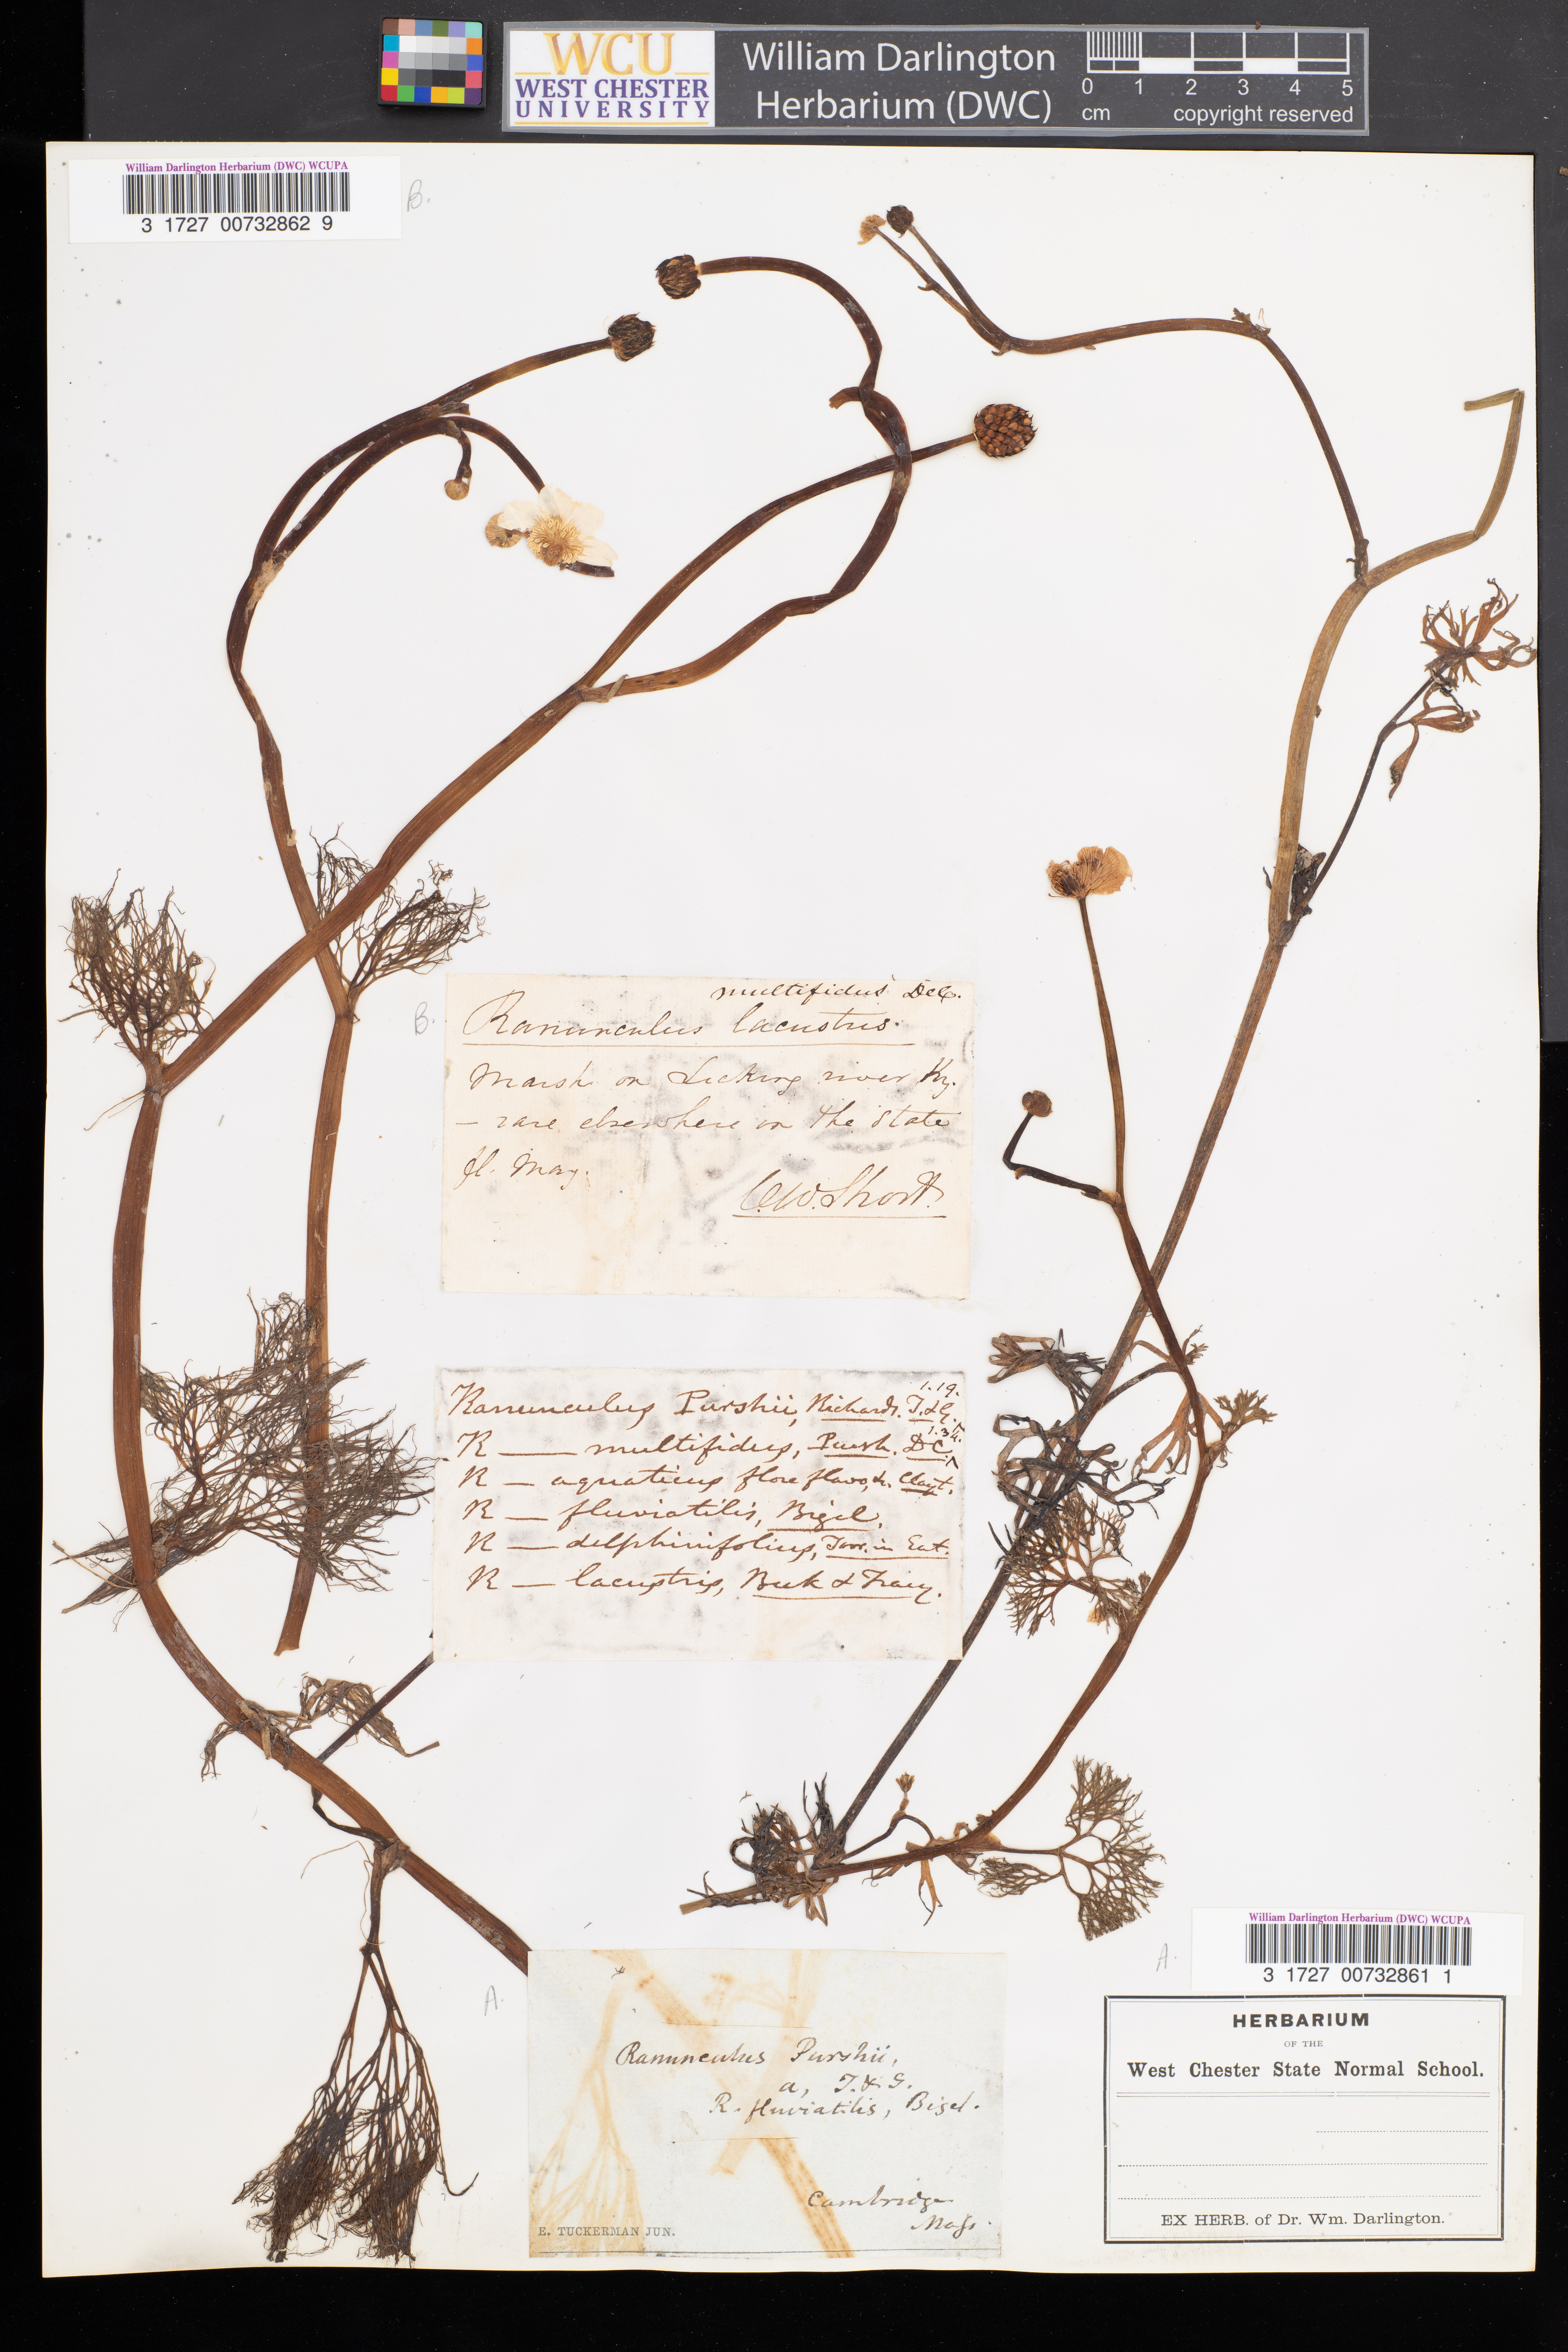 WCU
WEST CHESTER
UNIVERSITY
William Darlington
Herbarium (DWC)
0 1 2 3 4 5
cm copyright reserved
William Darlington Herbarium (DWC) WCUPA
3 1727 00732862 9
B.
B.
multifidus DeC.
Ranunculus lacustris.
Marsh on Licking river Ky.
— rare elsewhere in the State
fl. May.
C.W. Short.
1.19.
Ranunculus Purshii, Richards. T. & G.
1.34.
R — multifidus, Pursh. DC.
R — aquaticus flore flavo, &. Clayt.
R — fluviatilis, Bigel.
R — delphinifolius, Torr. in Eat.
R — lacustris, Beck & Tracy.
A.
Ranunculus Purshii,
a, T. & G.
R. fluviatilis, Bigel.
Cambridge
Mass.
E. TUCKERMAN JUN.
A.
William Darlington Herbarium (DWC) WCUPA
3 1727 00732861 1
HERBARIUM
OF THE
West Chester State Normal School.
EX HERB. of Dr. Wm. Darlington.